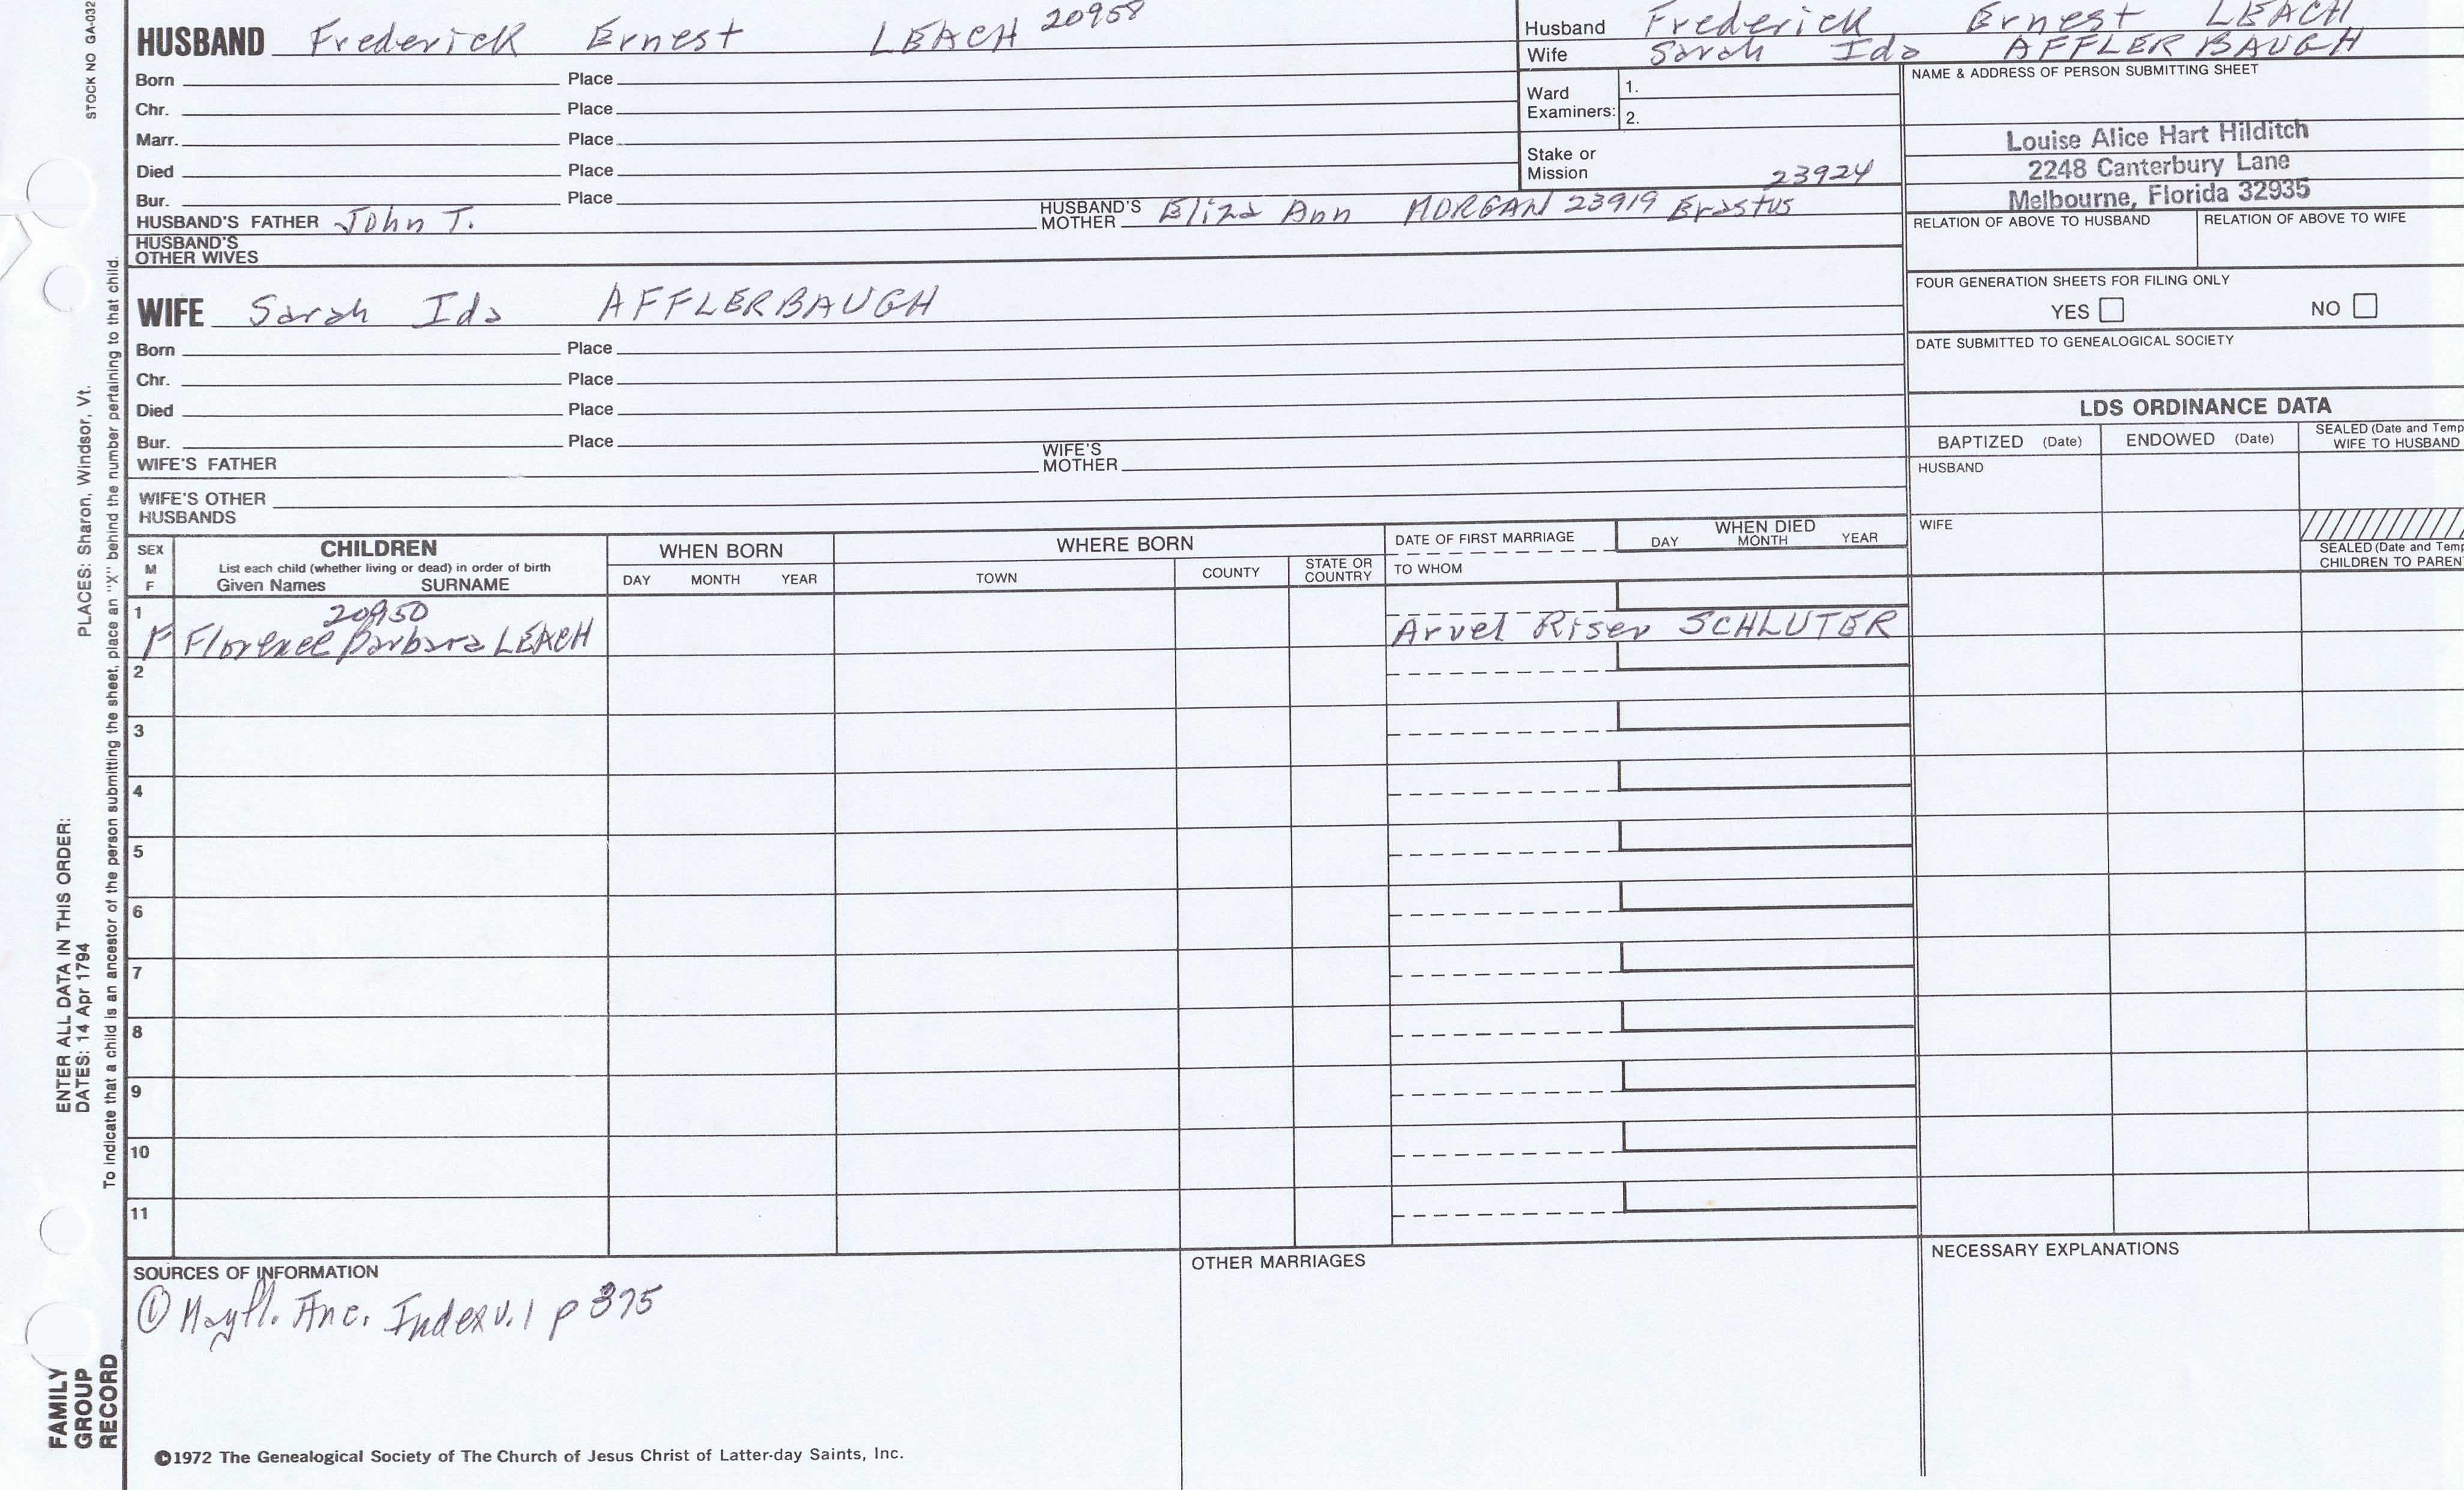 STOCK NO GA-032
PLACES: Sharon, Windsor, Vt.
ENTER ALL DATA IN THIS ORDER:
DATES: 14 Apr 1794
To indicate that a child is an ancestor of the person submitting the sheet, place an "X" behind the number pertaining to that child.
FAMILY
GROUP
RECORD
HUSBAND Frederick Ernest LEACH 20958
Born Place
Chr. Place
Marr. Place
Died Place
Bur. Place
HUSBAND'S FATHER John T. HUSBAND'S MOTHER Eliza Ann MORGAN 23919 Erastus 23924
HUSBAND'S
OTHER WIVES
WIFE Sarah Ida AFFLERBAUGH
Born Place
Chr. Place
Died Place
Bur. Place
WIFE'S FATHER WIFE'S MOTHER
WIFE'S OTHER
HUSBANDS
Husband Frederick Ernest LEACH
Wife Sarah Ida AFFLERBAUGH
Ward
Examiners: 1.
2.
Stake or
Mission
NAME & ADDRESS OF PERSON SUBMITTING SHEET
Louise Alice Hart Hilditch
2248 Canterbury Lane
Melbourne, Florida 32935
RELATION OF ABOVE TO HUSBAND RELATION OF ABOVE TO WIFE
FOUR GENERATION SHEETS FOR FILING ONLY
YES NO
DATE SUBMITTED TO GENEALOGICAL SOCIETY
LDS ORDINANCE DATA
BAPTIZED (Date) ENDOWED (Date) SEALED (Date and Temp
WIFE TO HUSBAND
HUSBAND
WIFE
SEALED (Date and Temp
CHILDREN TO PAREN
SEX
M
F
CHILDREN
List each child (whether living or dead) in order of birth
Given Names SURNAME
WHEN BORN
DAY MONTH YEAR
WHERE BORN
TOWN COUNTY STATE OR COUNTRY
DATE OF FIRST MARRIAGE
TO WHOM
WHEN DIED
DAY MONTH YEAR
1 20950
F Florence Barbara LEACH Arvel Riser SCHLUTER
2
3
4
5
6
7
8
9
10
11
SOURCES OF INFORMATION
① Mayfl. Anc. Index v. 1 p 375
OTHER MARRIAGES
NECESSARY EXPLANATIONS
©1972 The Genealogical Society of The Church of Jesus Christ of Latter-day Saints, Inc.